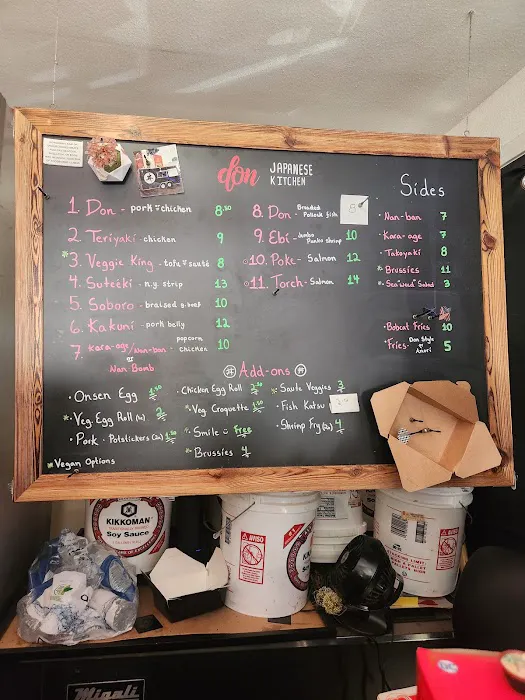 don JAPANESE
KITCHEN
1. Don - pork or chicken 8.50
2. Teriyaki - chicken 9
*3. Veggie King - tofu or sauté 8
4. Suteeki - n.y. strip 13
5. Soboro - braised g. beef 10
6. Kakuni - pork belly 12
7. Kara-age/Nan-ban - popcorn chicken 10
or
Nan-Bomb
8. Don - Breaded Pollock fish 8
9. Ebi - Jumbo Panko shrimp 10
10. Poke - Salmon 12
11. Torch - Salmon 14
Sides
Nan-ban 7
Kara-age 7
Takoyaki 8
*Brussies 11
*"Sea"weed Salad 3
Bobcat Fries 10
Fries - Don Style or Aonori 5
Add-ons
Onsen Egg 1.50
*Veg. Egg Roll (2u) 2
Pork Potstickers (2u) 1.50
Chicken Egg Roll
*Veg Croquette 1.50
Smile Free
*Brussies 4
*Saute Veggies 3
Fish Katsu
Shrimp Fry (2u) 4
*Vegan Options
KIKKOMAN
Soy Sauce
AVISO
KIKKOMAN
Migali